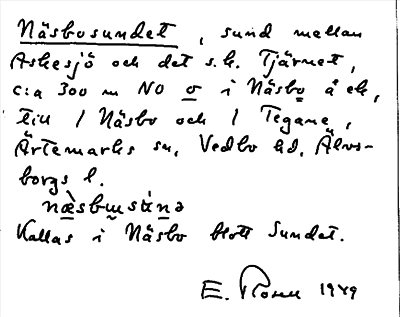 Näsbosundet, sund mellan
Askesjö och det s.k. Tjärnet,
c:a 300 m NO o i Näsbo å ek,
till 1 Näsbo och 1 Tegane,
Ärtemarks sn, Vedbo hd, Älvs-
borgs l.
Kallas i Näsbo blott Sundet.
E. Rosell 1949